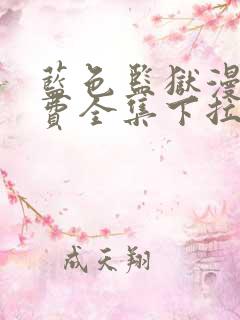 藍色監獄漫
費全集下拉
成天翔